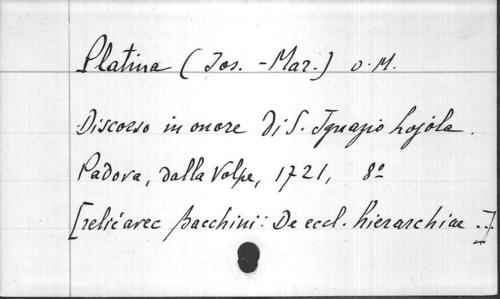 Platina (Jos. - Mar.) O. M.
Discorso in onore di S. Ignazio Lojola.
Padova, dalla Volpe, 1721, 8º
[relié avec Bacchini: De eccl. hierarchiae ..]